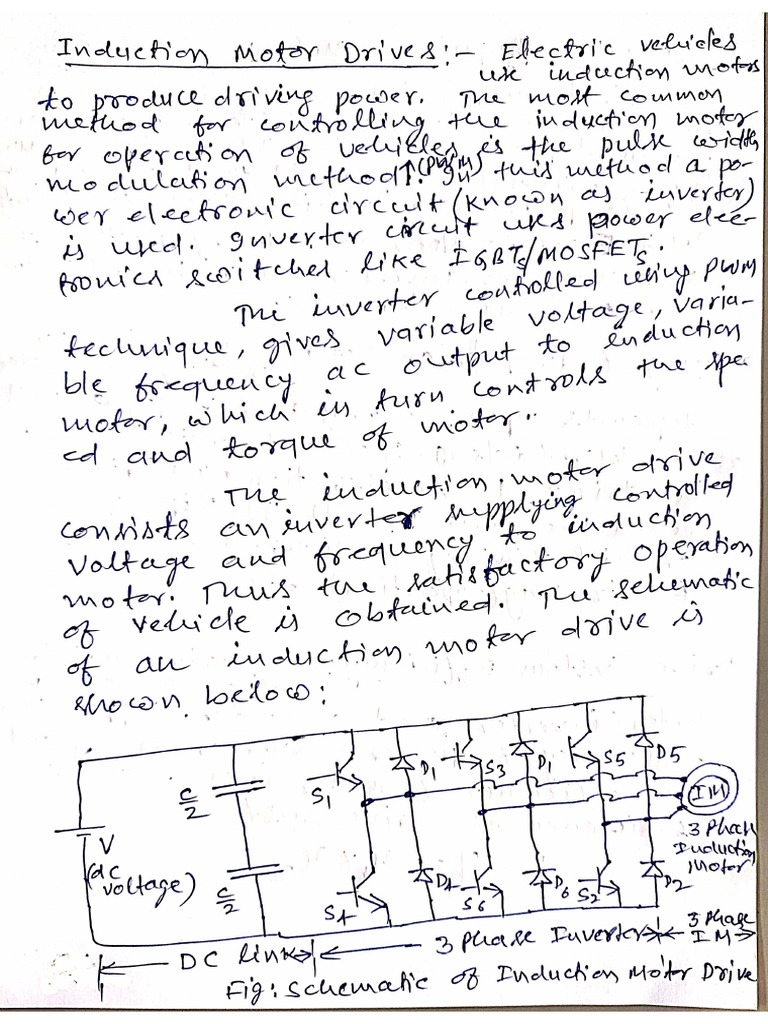 Induction Motor Drives:- Electric vehicles
use induction motors
to produce driving power. The most common
method for controlling the induction motor
for operation of vehicles is the pulse width
modulation method (PWM). In this method a po-
wer electronic circuit (known as inverter)
is used. Inverter circuit uses power elec-
tronics switches like IGBTs/MOSFETs.
The inverter controlled using PWM
technique, gives variable voltage, varia-
ble frequency ac output to induction
motor, which in turn controls the spe
ed and torque of motor.
The induction motor drive
consists an inverter supplying controlled
voltage and frequency to induction
motor. Thus the satisfactory operation
of vehicle is obtained. The schematic
of an induction motor drive is
shown below:
C/2
S1
D1
S3
D1
S5
D5
IM
V
(dc
voltage)
C/2
S4
D4
S6
D6
S2
D2
3 Phase
Induction
Motor
DC link
3 Phase Inverter
3 Phase
IM
Fig: Schematic of Induction Motor Drive